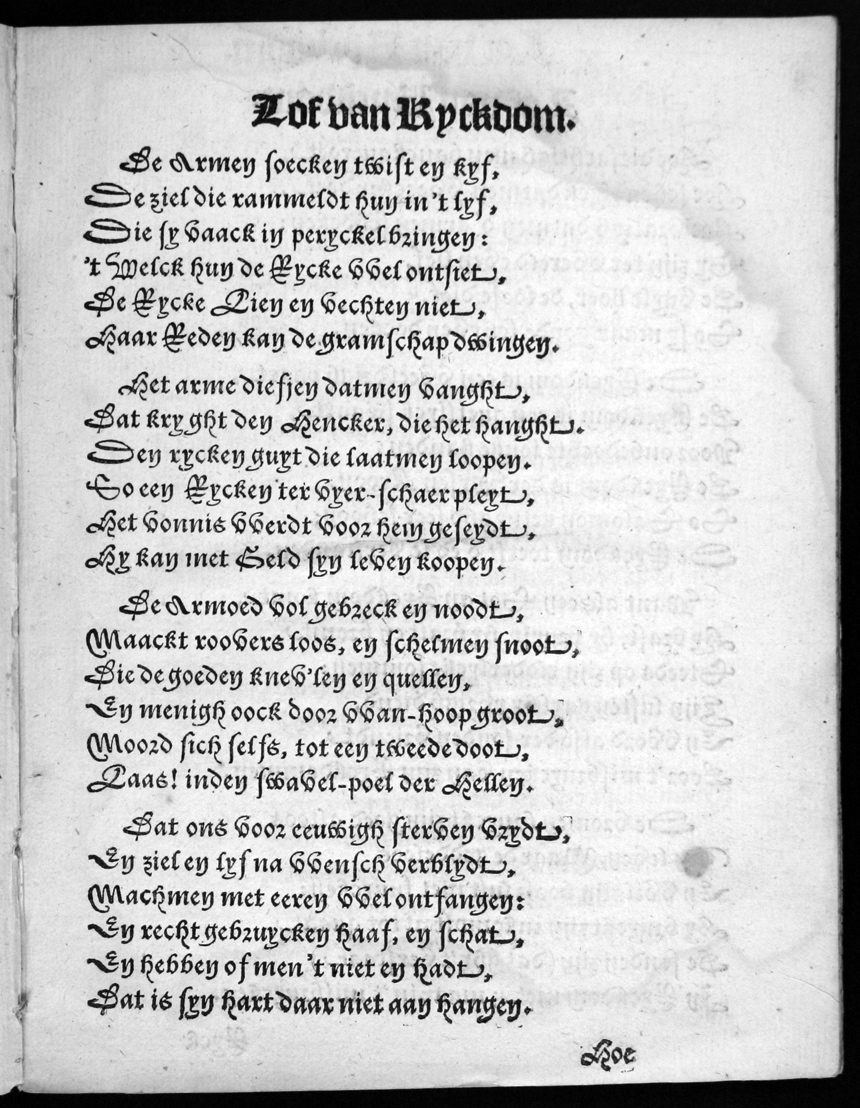 Lof van Ryckdom.
De Armen soecken twist en kyf,
De ziel die rammeldt hun in't lyf,
Die sy vaack in peryckel bringen:
't Welck hun de Rycke vvel ontsiet,
De Rycke Lien en vechten niet,
Haar Reden kan de gramschap dwingen.
Het arme diefjen datmen vanght,
Dat kryght den Hencker, die het hanght.
Den rycken guyt die laatmen loopen.
So een Rycken ter vyer-schaer pleyt,
Het vonnis vverdt voor hem geseydt,
Hy kan met Geld syn leven koopen.
De Armoed vol gebreck en noodt,
Maackt roovers loos, en schelmen snoot,
Die de goeden knev'len en quellen,
En menigh oock door vvan-hoop groot,
Moord sich selfs, tot een tweede doot,
Laas! inden swavel-poel der Hellen.
Dat ons voor eeuwigh sterven vrydt,
En ziel en lyf na vvensch verblydt,
Machmen met eeren vvel ontfangen:
En recht gebruycken haaf, en schat,
En hebben of men't niet en hadt,
Dat is syn hart daar niet aan hangen.
Hoe